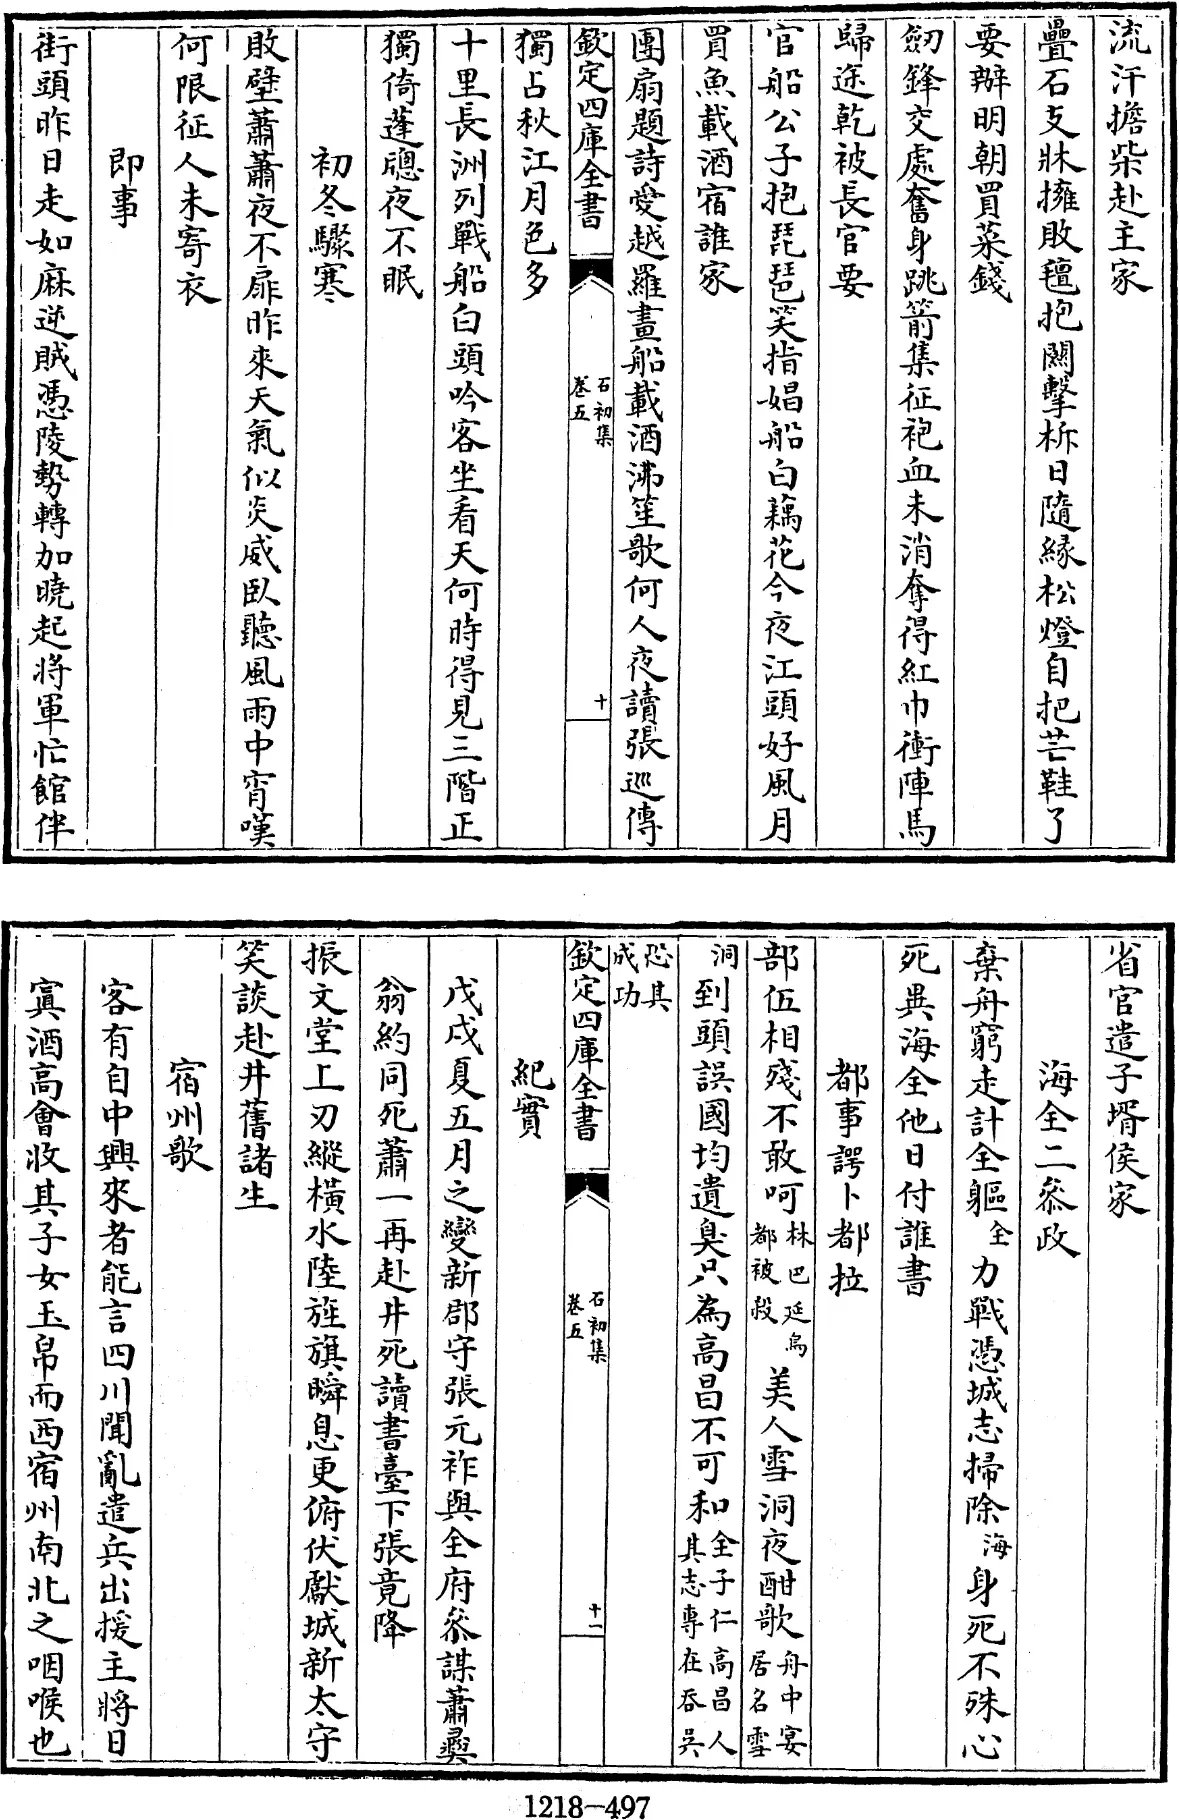 流汗擔柴赴主家
疊石支牀擁敗氊抱闗擊柝日隨緣松燈自把芒鞋了
要辦明朝買菜錢
劒鋒交處奮身跳箭集征袍血未消奪得紅巾衝陣馬
歸途乾被長官要
官船公子抱琵琶笑指娼船白藕花今夜江頭好風月
買魚載酒宿誰家
團扇題詩愛越羅畫船載酒沸笙歌何人夜讀張巡傳
欽定四庫全書
石初集
卷五
十
獨占秋江月色多
十里長洲列戰船白頭吟客坐看天何時得見三階正
獨倚蓬牕夜不眠
初冬驟寒
敗壁蕭蕭夜不扉昨來天氣似炎威臥聽風雨中宵嘆
何限征人未寄衣
即事
街頭昨日走如麻逆賊憑陵勢轉加曉起將軍忙館伴
省官遣子壻侯家
海全二叅政
棄舟窮走計全軀全力戰憑城志掃除海身死不殊心
死異海全他日付誰書
都事諤卜都拉
部伍相殘不敢呵林巴延烏都被殺美人雪洞夜酣歌舟中宴居名雪
洞到頭誤國均遺臭只為高昌不可和全子仁高昌人其志專在吞吳
恐其成功
欽定四庫全書
石初集
卷五
十一
紀實
戊戌夏五月之變新郡守張元祚與全府叅謀蕭彛
翁約同死蕭一再赴井死讀書臺下張竟降
振文堂上刃縱橫水陸旌旗瞬息更俯伏獻城新太守
笑談赴井舊諸生
宿州歌
客有自中興來者能言四川聞亂遣兵出援主將日
寘酒高會收其子女玉帛而西宿州南北之咽喉也
1218—497